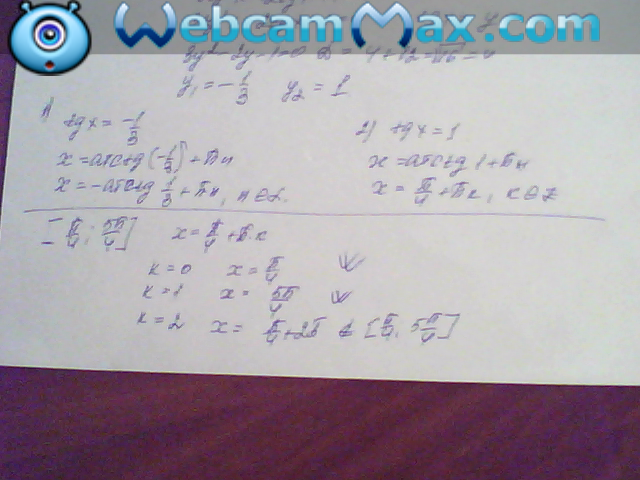 WebcamMax.com
3y² - 2y - 1 = 0 D = 4 + 12 = √16 = 4
y₁ = -1/3 y₂ = 1
1) tg x = -1/3
x = arctg(-1/3) + πn
x = -arctg 1/3 + πn, n ∈ Z.
2) tg x = 1
x = arctg 1 + πk
x = π/4 + πk, k ∈ Z
[π/4; 5π/4] x = π/4 + πk
k = 0 x = π/4
k = 1 x = 5π/4
k = 2 x = π/4 + 2π ∉ [π/4; 5π/4]